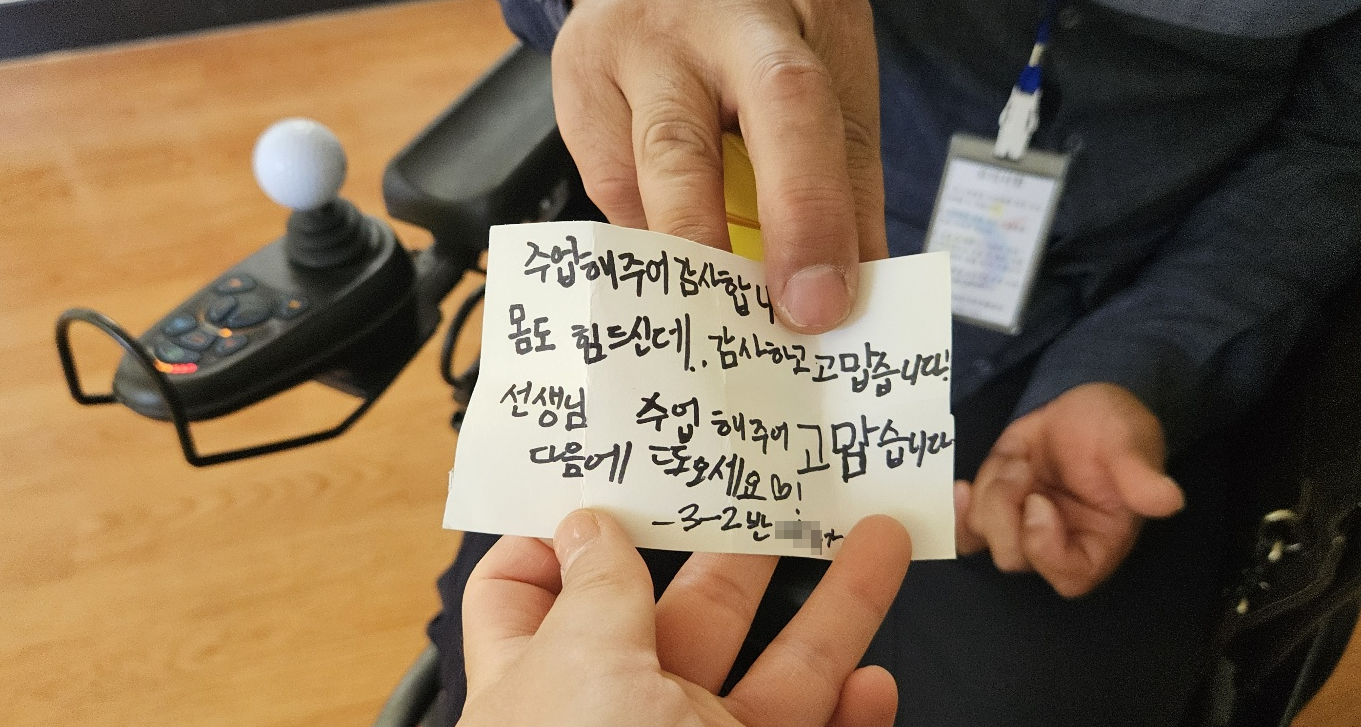 주업해주어 감사합니
몸도 힘드신데.. 감사하고 고맙습니다!
선생님 수업 해주어 고맙습니다
다음에 또오세요♡!
-3-2반